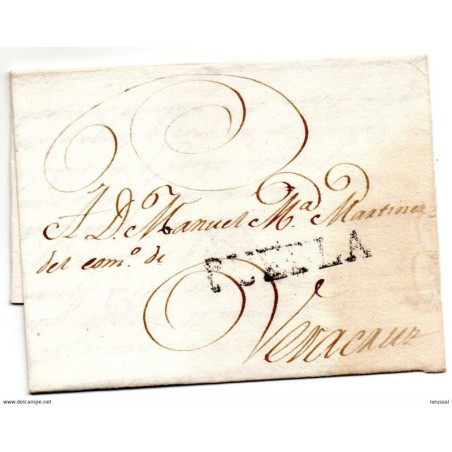 A D. Manuel Mª. Martinez
del comº. de
PUEBLA
Veracruz
www.delcampe.net
neussal